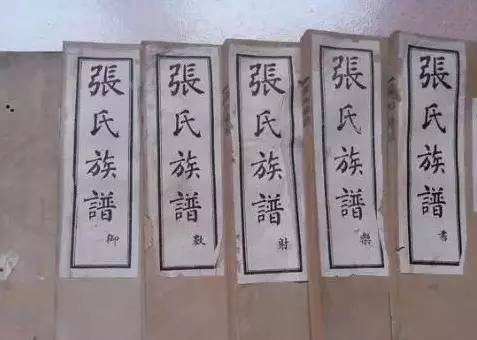 張氏族譜 御
張氏族譜 数
張氏族譜 射
張氏族譜 樂
張氏族譜 書